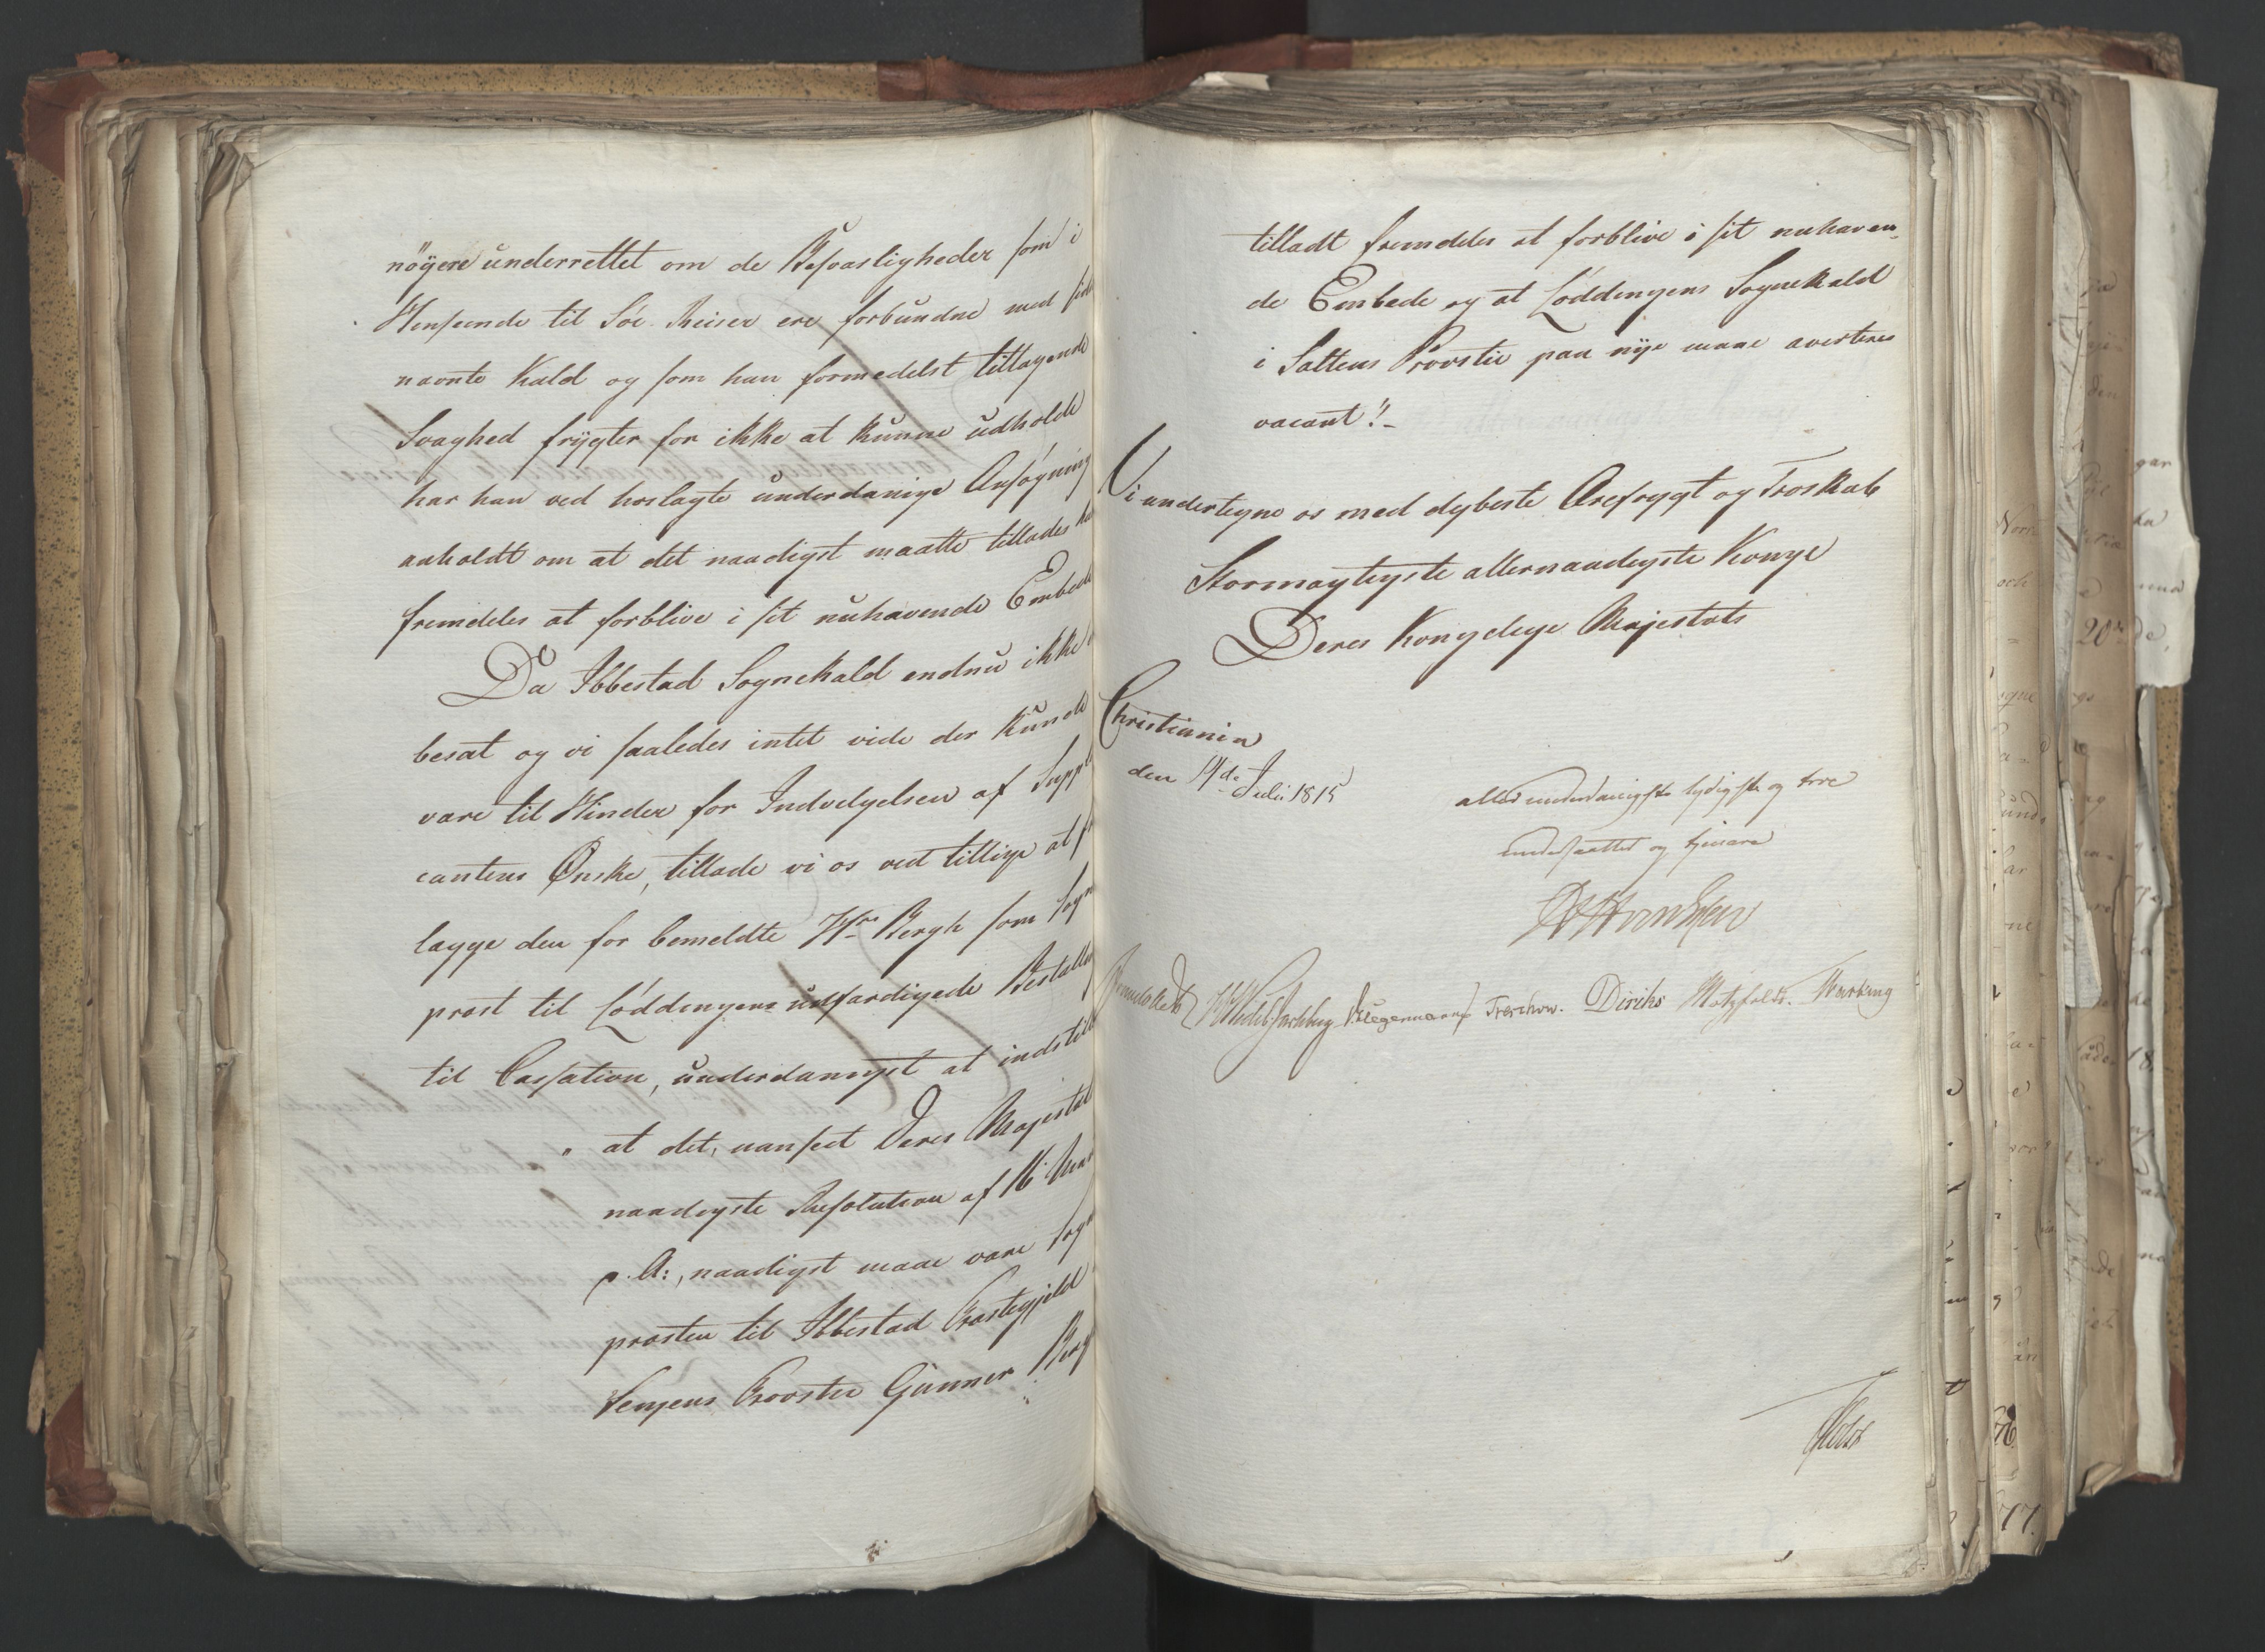 nøyere underrettet om de Besværligheder som i
Henseende til Søe Reiser ere forbundne med sidst
nævnte Kald og som han formedelst tiltagende
Svaghed frygter for ikke at kunne udholde
har han ved hoslagte underdanige Ansøgning
anholdt om at det naadigst maatte tillades ham
fremdeles at forblive i sit nuhavende Embede
Da Ibbestad Sognekald endnu ikke
besat og vi saaledes intet vide der kunde
være til Hinder for Indvilgelsen af Suppli
cantens Ønske, tillade vi os ved tillige at
lægge den for bemeldte Hr Bergh som Sogne
præst til Løddingens udfærdigede Bestalling
til Cassation, underdanigst at indstille
" at det, uanseet Deres Majestæts
naadigste Resolution af 16 Mai
p. A:, naadigst maae være Sogne
præsten til Ibbestad Præstegjeld
Senjens Provstie Gunner Berg
tilladt fremdeles at forblive i sit nuhaven-
de Embede og at Løddingens Sognekald
i Saltens Provstie paa nye maae averteres
vacant"-
Vi undertegne os med dybeste Ærefrygt og Troskab
Stormægtigste allernaadigste Konge
Deres Kongelige Majestæts
Christiania
den 14de Julii 1815
allerunderdanigste lydigste og troe
undersaatter og tjenere
Sommerhielm HWedel Jarlsberg Krieger Treschow. Diriks Motzfeldt.
Holst